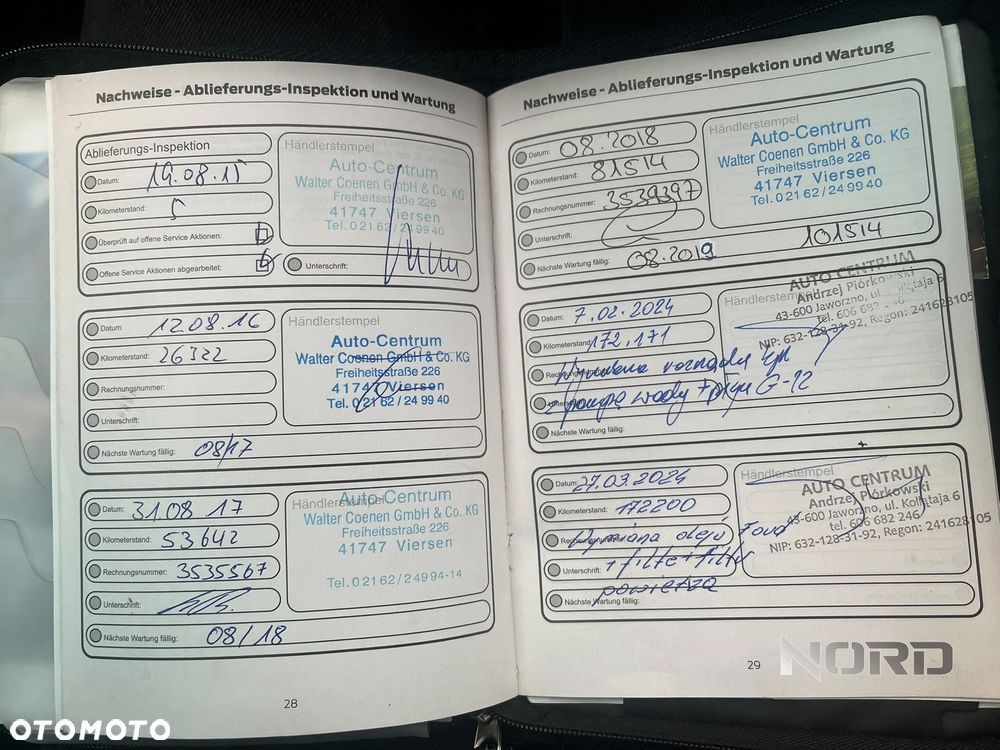 Nachweise - Ablieferungs-Inspektion und Wartung
Ablieferungs-Inspektion
Datum: 19.08.15
Kilometerstand: 5
Überprüft auf offene Service Aktionen:
Offene Service Aktionen abgearbeitet:
Händlerstempel
Auto-Centrum
Walter Coenen GmbH & Co. KG
Freiheitsstraße 226
41747 Viersen
Tel. 0 21 62 / 24 99 40
Unterschrift:
Datum: 12.08.16
Kilometerstand: 26322
Rechnungsnummer:
Unterschrift:
Nächste Wartung fällig: 08/17
Händlerstempel
Auto-Centrum
Walter Coenen GmbH & Co. KG
Freiheitsstraße 226
41747 Viersen
Tel. 0 21 62 / 24 99 40
Datum: 31.08 17
Kilometerstand: 53642
Rechnungsnummer: 3535567
Unterschrift:
Nächste Wartung fällig: 08/18
Händlerstempel
Auto-Centrum
Walter Coenen GmbH & Co. KG
Freiheitsstraße 226
41747 Viersen
Tel. 0 21 62 / 2 49 94-14
28
Nachweise - Ablieferungs-Inspektion und Wartung
Datum: 08.2018
Kilometerstand: 81514
Rechnungsnummer: 3539397
Unterschrift:
Nächste Wartung fällig: 08.2019 101514
Händlerstempel
Auto-Centrum
Walter Coenen GmbH & Co. KG
Freiheitsstraße 226
41747 Viersen
Tel. 0 21 62 / 24 99 40
Datum: 7.02.2024
Kilometerstand: 172,171
Wymiana rozrządu
z pompą wody + płyn G-12
Nächste Wartung fällig:
Händlerstempel
AUTO CENTRUM
Andrzej Piórkowski
43-600 Jaworzno, ul. Kołłątaja 6
tel. 606 682 246
NIP: 632-128-31-92, Regon: 241628105
Datum: 27.03.2024
Kilometerstand: 172200
Wymiana oleju Ford
+ filtr + filtr
powietrza
Unterschrift:
Nächste Wartung fällig:
Händlerstempel
AUTO CENTRUM
Andrzej Piórkowski
43-600 Jaworzno, ul. Kołłątaja 6
tel. 606 682 246
NIP: 632-128-31-92, Regon: 241628105
29
NORD
OTOMOTO